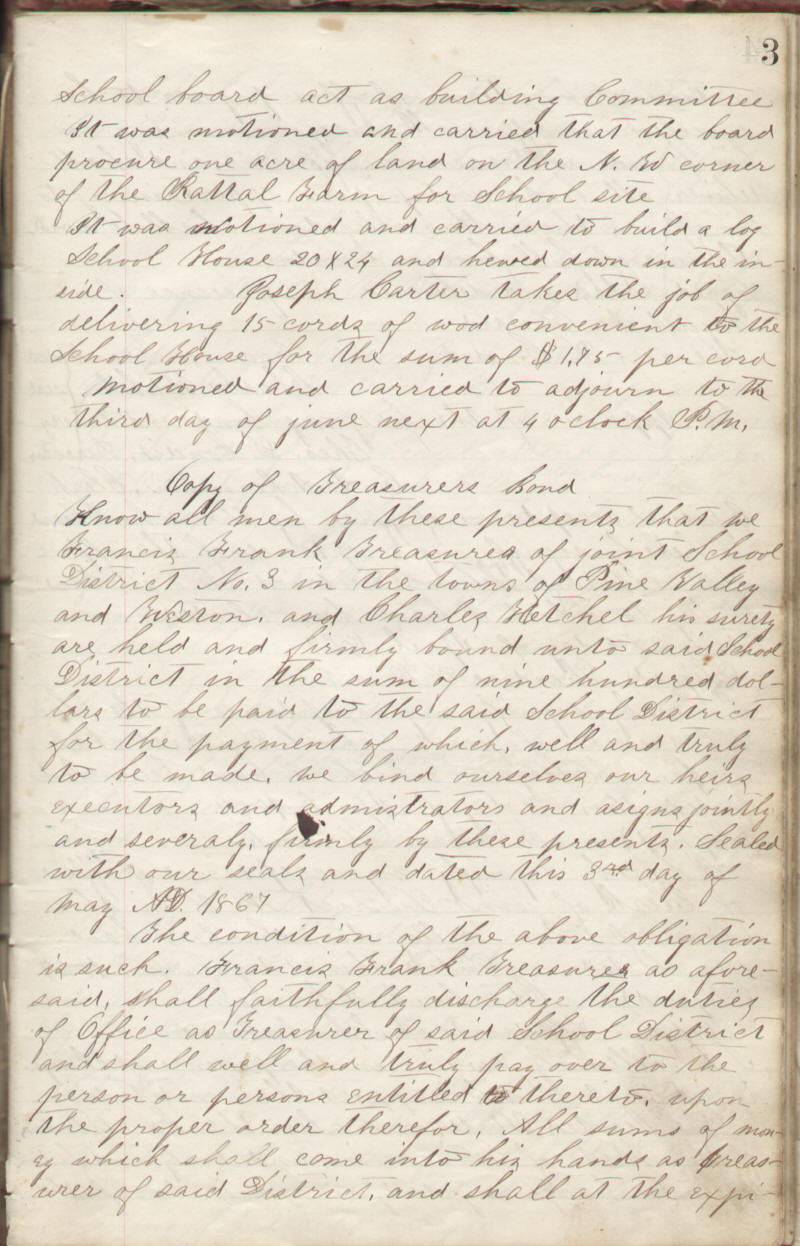 3
School board act as building Committee
It was motioned and carried that the board
procure one acre of land on the N. W corner
of the Rattal Farm for School site
It was motioned and carried to build a log
School House 20 X 24 and hewed down in the in-
side. Joseph Carter takes the job of
delivering 15 cords of wod convenient to the
School House for the sum of $1.75 per cord
motioned and carried to adjourn to the
third day of june next at 4 oclock P.M.
Copy of Treasurers Bond
Know all men by these presents that we
Francis Frank Treasurer of joint School
District No. 3 in the towns of Pine Valley
and Weston. and Charles Hetchel his surety
are held and firmly bound unto said School
District in the sum of nine hundred dol-
lars to be paid to the said School District
for the payment of which, well and truly
to be made, we bind ourselves our heirs
executors and admistrators and asigns jointly
and severaly, firmly by these presents. Sealed
with our seals and dated this 3rd day of
May AD. 1867
The condition of the above obligation
is such. Francis Frank Treasurer as afore-
said, shall faithfully discharge the duties
of Office as Treasurer of said School District
and shall well and truly pay over to the
person or persons entitled to thereto, upon
the proper order therefor, All sums of mon-
ey which shall come into his hands as treas-
urer of said District, and shall at the expi-